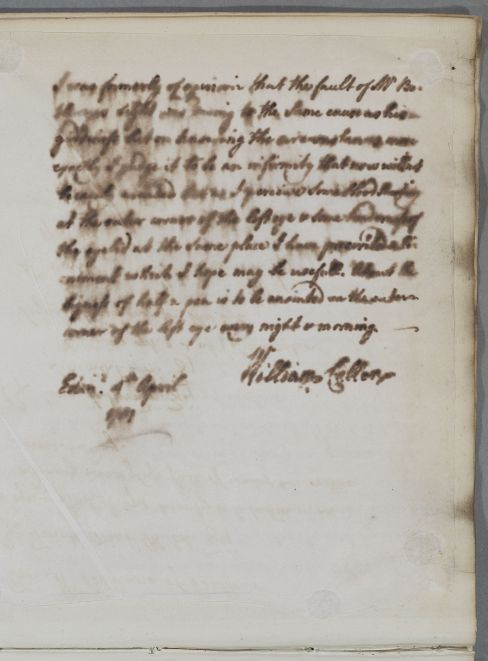 I was formerly of opinion that the fault of Mr Bo-
sight was owing to the Same cause as his
but on knowing the circumstances more
I judge it to be an infirmity that
be I perceive Some blood
at the outer corner of the left eye & Some hardness of
the eyelid at the Same place I have prescribed a li-
niment which I hope may be usefull. About the
bigness of half a pea is to be anointed on the outer
corner of the left eye every night & morning.
William Cullen
Edinr. 4th April